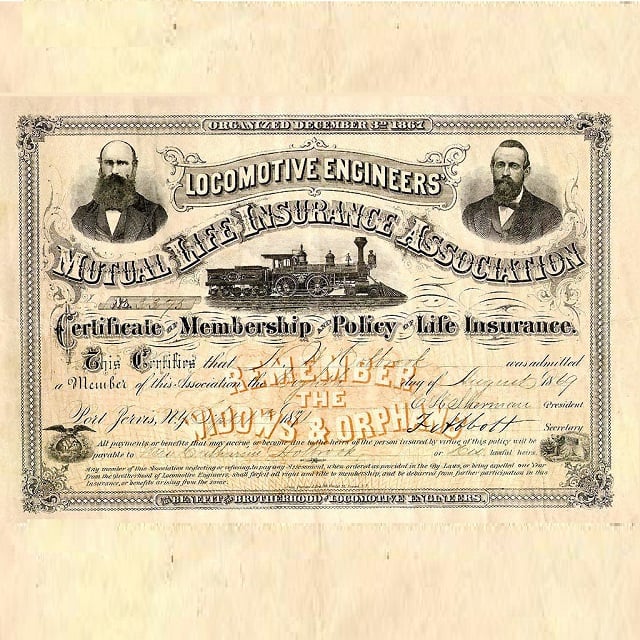 ORGANIZED DECEMBER 3RD 1867
LOCOMOTIVE ENGINEERS'
MUTUAL LIFE INSURANCE ASSOCIATION
No.
Certificate OF Membership AND Policy OF Life Insurance.
This Certifies that was admitted
a Member of this Association the day of August 1869
REMEMBER
THE
WIDOWS & ORPHANS
Port Jervis, N.Y. President
Secretary
All payments or benefits that may accrue or become due to the heirs of the person insured by virtue of this policy will be
payable to Mrs Catherine or lawful heirs.
Any member of this Association neglecting or refusing to pay any assessment, when ordered as provided in the By-Laws, or being expelled one Year
from the Brotherhood of Locomotive Engineers, shall forfeit all right and title to membership, and be debarred from further participation in this
Insurance, or benefits arising from the same.
BENEFIT BROTHERHOOD OF LOCOMOTIVE ENGINEERS.